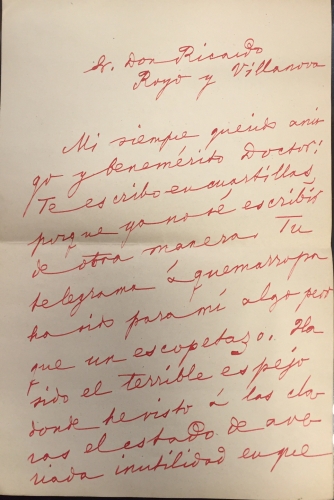 Sr. Don Ricardo
Royo y Villanova
Mi siempre querido ami
go y benemérito Doctor:
Te escribo en cuartillas,
porque ya no sé escribir
de otra manera. Tu
telegrama á quemarropa
ha sido para mí algo peor
que un escopetazo. Ha
sido el terrible espejo
donde he visto á las cla
ras el estado de ave
riada inutilidad en que